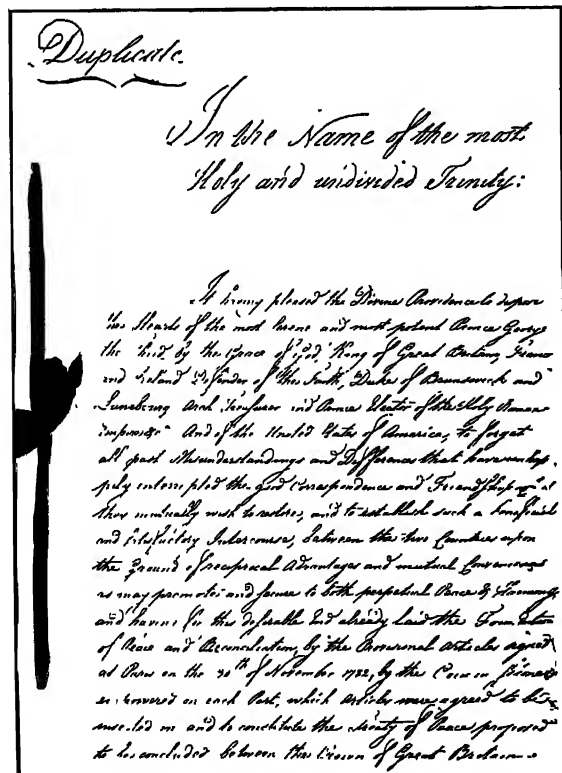 Duplicate.
In the Name of the most
Holy and undivided Trinity:
It having pleased the Divine Providence to dispose
the Hearts of the most Serene and most potent Prince George
the third, by the Grace of God, King of Great Britain, France
and Ireland Defender of the Faith, Duke of Brunswick and
Lunebourg Arch Treasurer and Prince Elector of the Holy Roman
Empire &c. And of the United States of America, to forget
all past Misunderstandings and Differences that have unhap
pily interrupted the good Correspondence and Friendship wch
they mutually wish to restore, and to establish such a beneficial
and satisfactory Intercourse, between the two Countries upon
the Ground of reciprocal Advantages and mutual Convenience
as may promote and secure to both perpetual Peace & Harmony,
and having for this desirable End already laid the Foundation
of Peace and Reconciliation, by the Provisional Articles signed
at Paris on the 30th of November 1782, by the Commissioners
empowered on each Part, which Articles were agreed to be
inserted in and to constitute the Treaty of Peace proposed
to be concluded between the Crown of Great Britain